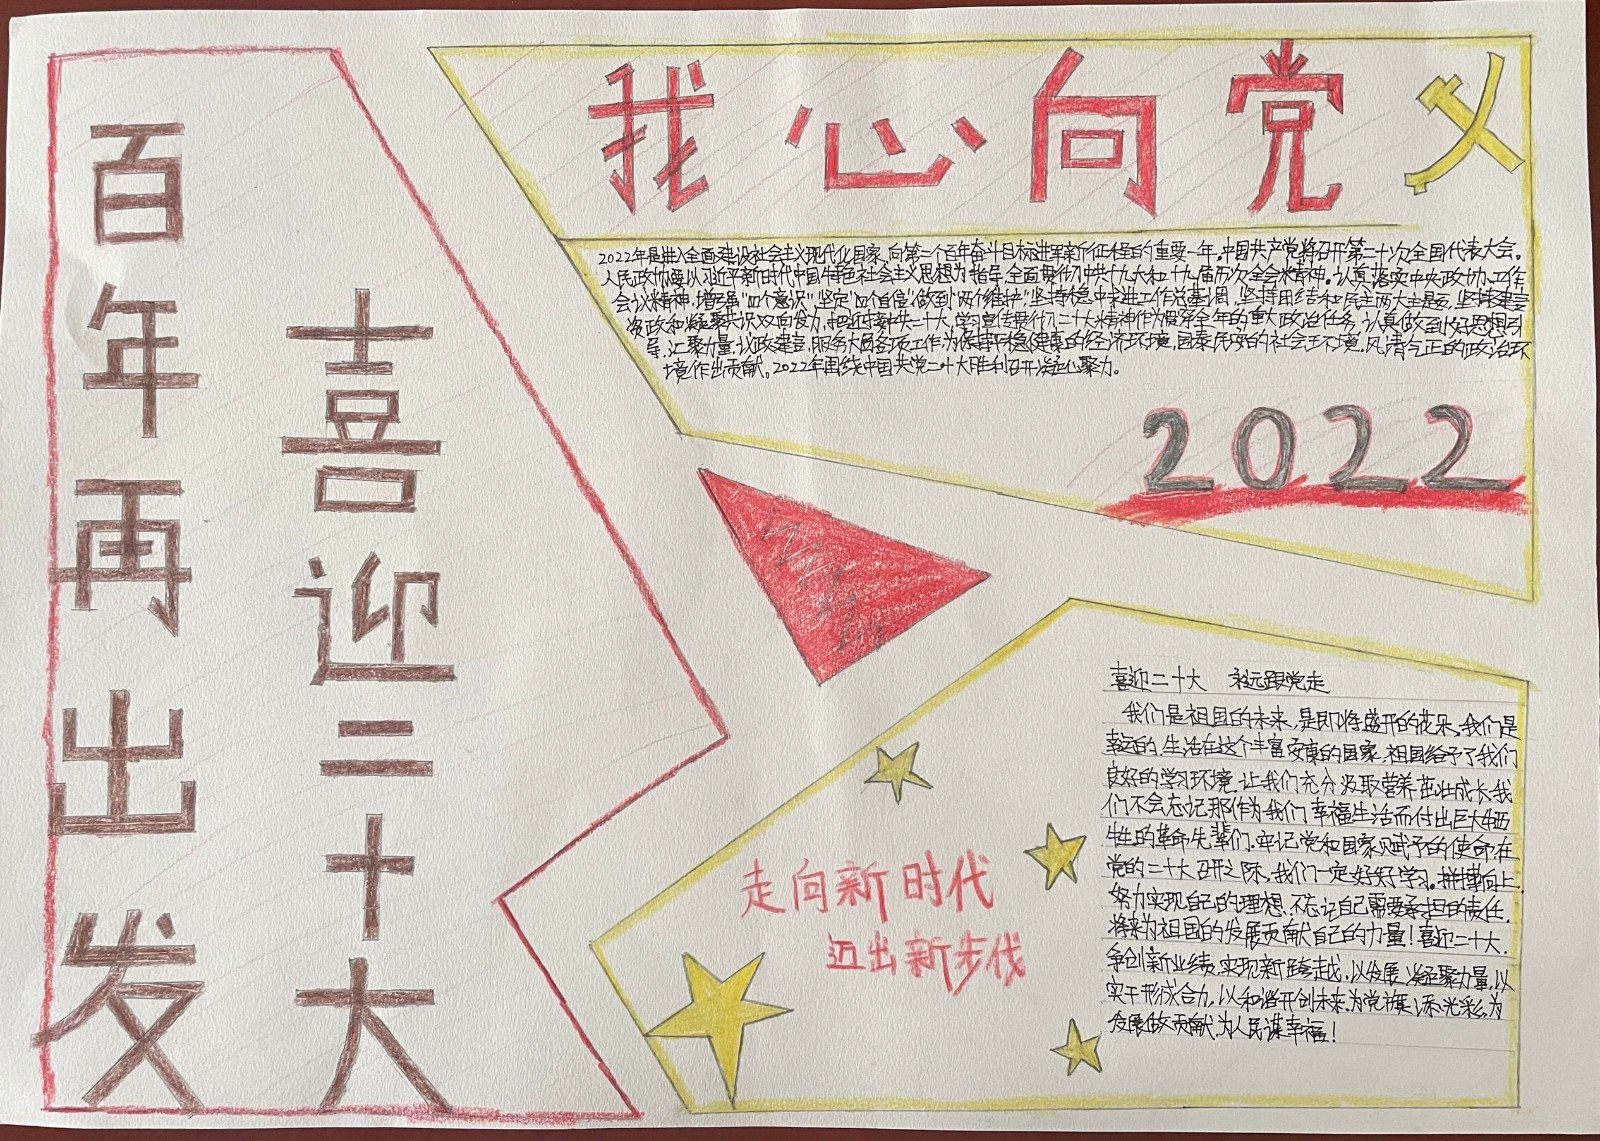 百年再出发
喜迎二十大
我心向党
2022年是进入全面建设社会主义现代化国家,向第二个百年奋斗目标进军新征程的重要一年。中国共产党将召开第二十次全国代表大会。
人民政协要以习近平新时代中国特色社会主义思想为指导,全面贯彻中共十九大和十九届历次全会精神。认真落实中央政协工作
会议精神,增强"四个意识"坚定"四个自信"做到"两个维护"坚持稳中求进工作总基调,坚持团结和民主两大主题,坚持建言
资政和凝聚共识双向发力,把迎接中共二十大,学习宣传贯彻二十大精神作为贯穿全年的重大政治任务,认真做到好思想引
导,汇聚力量,议政建言,服务大局各项工作,为保持平稳健康的经济环境,国泰民安的社会主环境,风清气正的政治环
境作出贡献。2022年围绕中国共党二十大胜利召开凝心聚力。
2022
喜迎二十大 永远跟党走
我们是祖国的未来,是即将盛开的花朵,我们是
幸运的,生活在这个丰富安康的国家,祖国给予了我们
良好的学习环境,让我们充分汲取营养茁壮成长我
们不会忘记那作为我们幸福生活而付出巨大牺
牲的革命先辈们,牢记党和国家赋予的使命,在
党的二十大召开之际,我们一定好好学习。拼搏向上,
努力实现自己的理想,不忘记自己需要承担的责任,
将来为祖国的发展贡献自己的力量!喜迎二十大,
争创新业绩,实现新跨越,以发展凝聚力量,以
实干形成合力,以和谐开创未来,为党旗添光彩,为
发展做贡献,为人民谋幸福!
走向新时代
迈出新步伐